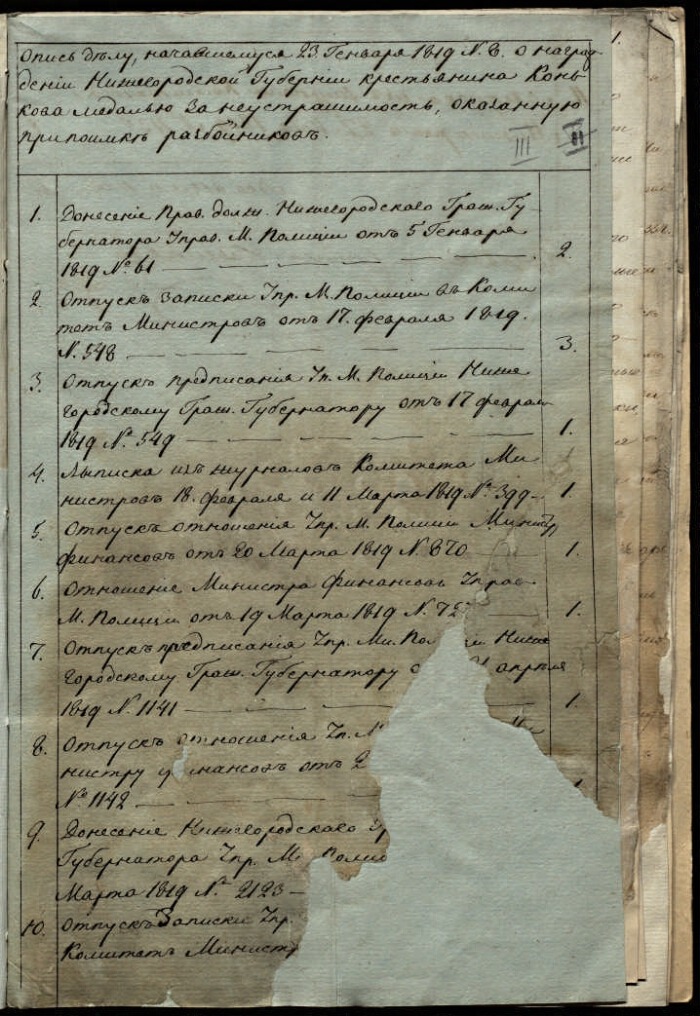 Опись дѣлу, начавшемуся 23 Генваря 1819 N. 8. о награж
деніи Нижегородской Губерніи крестьянина Конь
кова медалью за неустрашимость, оказанную
при поимкѣ разбойниковъ.
III II
1. Донесеніе Прав. должн. Нижегородскаго Граж. Гу
бернатора Управ. М. Полиціи отъ 5 Генваря
1819 № 61 — — — — — 2.
2. Отпускъ записки Упр. М. Полиціи въ Коми
тетъ Министровъ отъ 17. февраля 1819.
N. 548 — — — — — 3.
3. Отпускъ предписанія Уп. М. Полиціи Ниже
городскому Граж. Губернатору отъ 17 феврал
1819 № 549 — — — — — 1.
4. Выписка изъ журналовъ Комитета Ми
нистровъ 18. февраля и 11 Марта 1819 № 399 — 1.
5. Отпускъ отношенія Упр. М. Полиціи Минист
финансовъ отъ 20 Марта 1819 N. 870 — 1.
6. Отношеніе Министра финансовъ Управ.
М. Полиціи отъ 19 Марта 1819 N. — 1.
7. Отпускъ предписанія Упр. Ми. Пол и Ниже
городскому Граж. Губернатору о апрѣля
1819 N. 1141 — — — 1.
8. Отпускъ отношенія Уп. М Ми
нистру финансовъ отъ 2
№ 1142 — — 1
9. Донесеніе Нижегородскаго Гр
Губернатора Упр. М. Полиц
Марта 1819 № 2123 —
10. Отпускъ Записки Упр
Комитетъ Министр